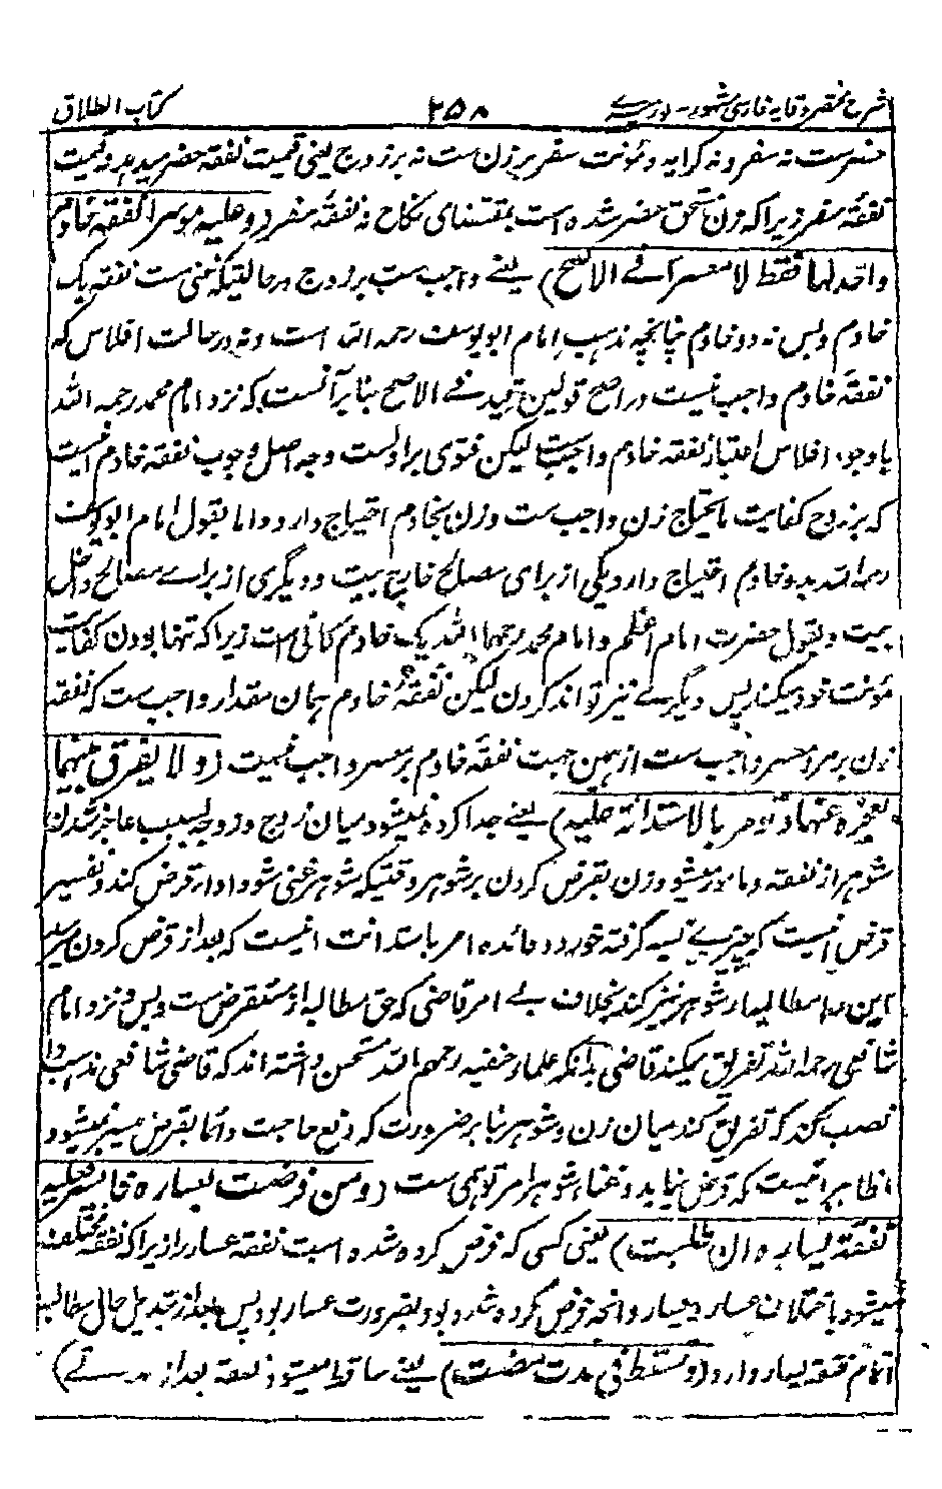 شرح مختصر وقایه فارسی مشهور ۲۵۸ کتاب الطلاق
حضرست نه سفر و نه کرایه و مؤنت سفر بر زن ست نه بر زوج یعنی قیمت نفقه حضر میدهد و قیمت
نفقهٔ سفر زیراکه زن مستحق حضر شده است بمقتضای نکاح نه نفقهٔ سفر (و علیه موسرا نفقة خادم
واحد لها فقط لا معسرا فی الاصح) یعنے واجب ست بر زوج در حالتیکه غنی ست نفقه یک
خادم و بس نه دو خادم چنانچه مذهب امام ابو یوسف رحمه الله است و نه در حالت افلاس که
نفقهٔ خادم واجب نیست در اصح قولین قید فے الاصح بنا بر آنست که نزد امام محمد رحمه الله
باوجود افلاس نفقه خادم واجبست لیکن فتوی بر اولست وجه اصل وجوب نفقه خادم انیست
که بر زوج کفایت مایحتاج زن واجب ست و زن بخادم احتیاج دارد و اما بقول امام ابو یوسف
رحمه الله بدو خادم احتیاج دارد یکی از برای مصالح خارج بیت و دیگری از براے مصالح داخل
بیت و بقول حضرت امام اعظم و امام محمد رحمهما الله یک خادم کافی است زیراکه تنها بودن کفایت
مؤنت خود میکند پس دیگرے نیز تواند کردن لیکن نفقهٔ خادم همان مقدار واجب ست که نفقه
زن بر مرد معسر واجب ست از همین جهت نفقهٔ خادم بر معسر واجب نیست (و لا یفرق بینهما
لعجزه عنها و تؤمر بالاستدانة علیه) یعنے جدا کرده نمیشود میان زوج و زوجه بسبب عاجز شدن
شوهر از نفقه و مامور میشود زن بقرض کردن بر شوهر وقتیکه شوهر غنی شود ادا قرض کند و تفسیر
قرض انیست که چیزے نسیه گرفته خورد و فائده امر باستدانت انیست که بعد از قرض کردن
این را مطالبه از شوهر نیز کند بخلاف بے امر قاضی که حق مطالبه از مستقرض ست و بس و نزد امام
شافعی رحمه الله تفریق میکند قاضی بدانکه علماء حنفیه رحمهم الله مستحسن داشته اند که قاضی شافعی مذهب را
نصب کند که تفریق کند میان زن و شوهر بنا بر ضرورت که دفع حاجت دائما بقرض میسر نمیشود و
ظاهر انیست که قرض نیابد و غناء شوهر امر توهمی ست (و من فرضت لیساره فایسر فعلیه
نفقة یساره ان طلبت) یعنی کسی که فرض کرده شده است نفقه عسار را زیراکه نفقه مختلف
میشود باختلاف عسار و یسار و آنچه فرض کرده شده بود بضرورت عسار بود پس بعد از تبدیل حال مطالبه
تمام نفقه یسار دارد (و تسقط فی مدت مضت) یعنے ساقط میشود نفقه بعد از مدتے)